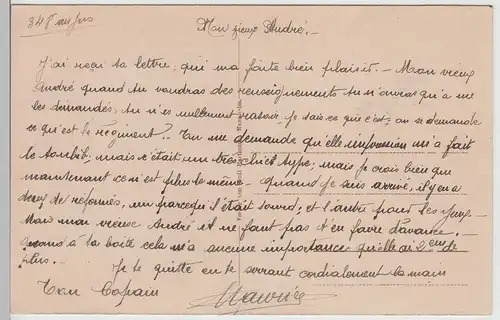 Mon vieux André.-
J'ai reçu ta lettre, qui m'a faite bien plaisir.- Mon vieux
André quand tu voudras des renseignements tu n'auras qu'a me
les demandés, tu n'es nullement rasoir. Je sais ce que c'est, on se demande
ce qu'est le régiment?. Tu me demande qu'elle impression m'a fait
le toubib, mais s'était un très chic type, mais je crois bien que
maintenant ce n'est plus le même.- quand je suis arrivé, il y en a
deux de réformés, un parcequ'il était sourd, et l'autre pour les yeux.-
Mais mon vieux André il ne faut pas t'en faire d'avance.-
quand à la boite cela n'a aucune importance qu'elle ai 2cm de
plus. Je te quitte en te serrant cordialement la main
Ton Copain
Maurice